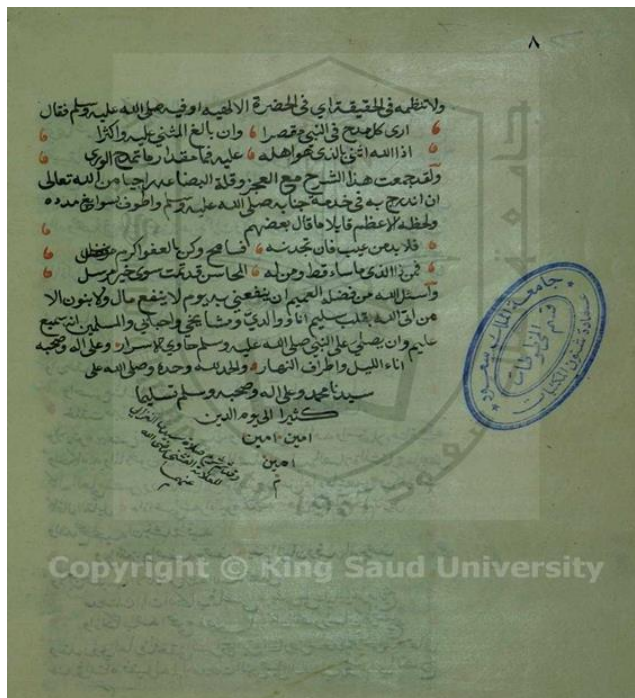 ٨
ولا تنظمه في الحقيقة اي في الحضرة الالهيه او فيه صلى الله عليه وسلم فقال
ارى كل مدح في النبي مقصرا وان بالغ المثني عليه واكثرا
اذا الله اثنى بالذي هو اهله عليه فما مقدار ما تمدح الورى
ولقد جمعت هذا الشرح مع العجز وقلة البضاعه راجيا من الله تعالى
ان اندرج به في خدمة جنابه صلى الله عليه وسلم واطوف بسوابغ مدده
ولحظه الاعظم قايلا ما قال بعضهم
فلا بد من عيب فان تجدنه فسامح وكن بالعفو اكرم مفضل
فمن ذا الذي ما ساء قط ومن له المحاسن قد تمت سوى خير مرسل
واسئل الله من فضله العميم ان ينفعني به يوم لا ينفع مال ولا بنون الا
من اتى الله بقلب سليم انا ووالدي ومشايخي واحبائي والمسلمين انه سميع
عليم وان يصلي على النبي صلى الله عليه وسلم حاوي الاسرار وعلى اله وصحبه
اناء الليل واطراف النهار والحمد لله وحده وصلى الله على
سيدنا محمد وعلى اله وصحبه وسلم تسليما
كثيرا الى يوم الدين
امين امين
امين
م
وقد تم شرح صلاة سيدنا الغزالي
للعلامة رضي الله
عنهما
م
جامعة الملك سعود
عمادة شؤون المكتبات
قسم المخطوطات
Copyright © King Saud University